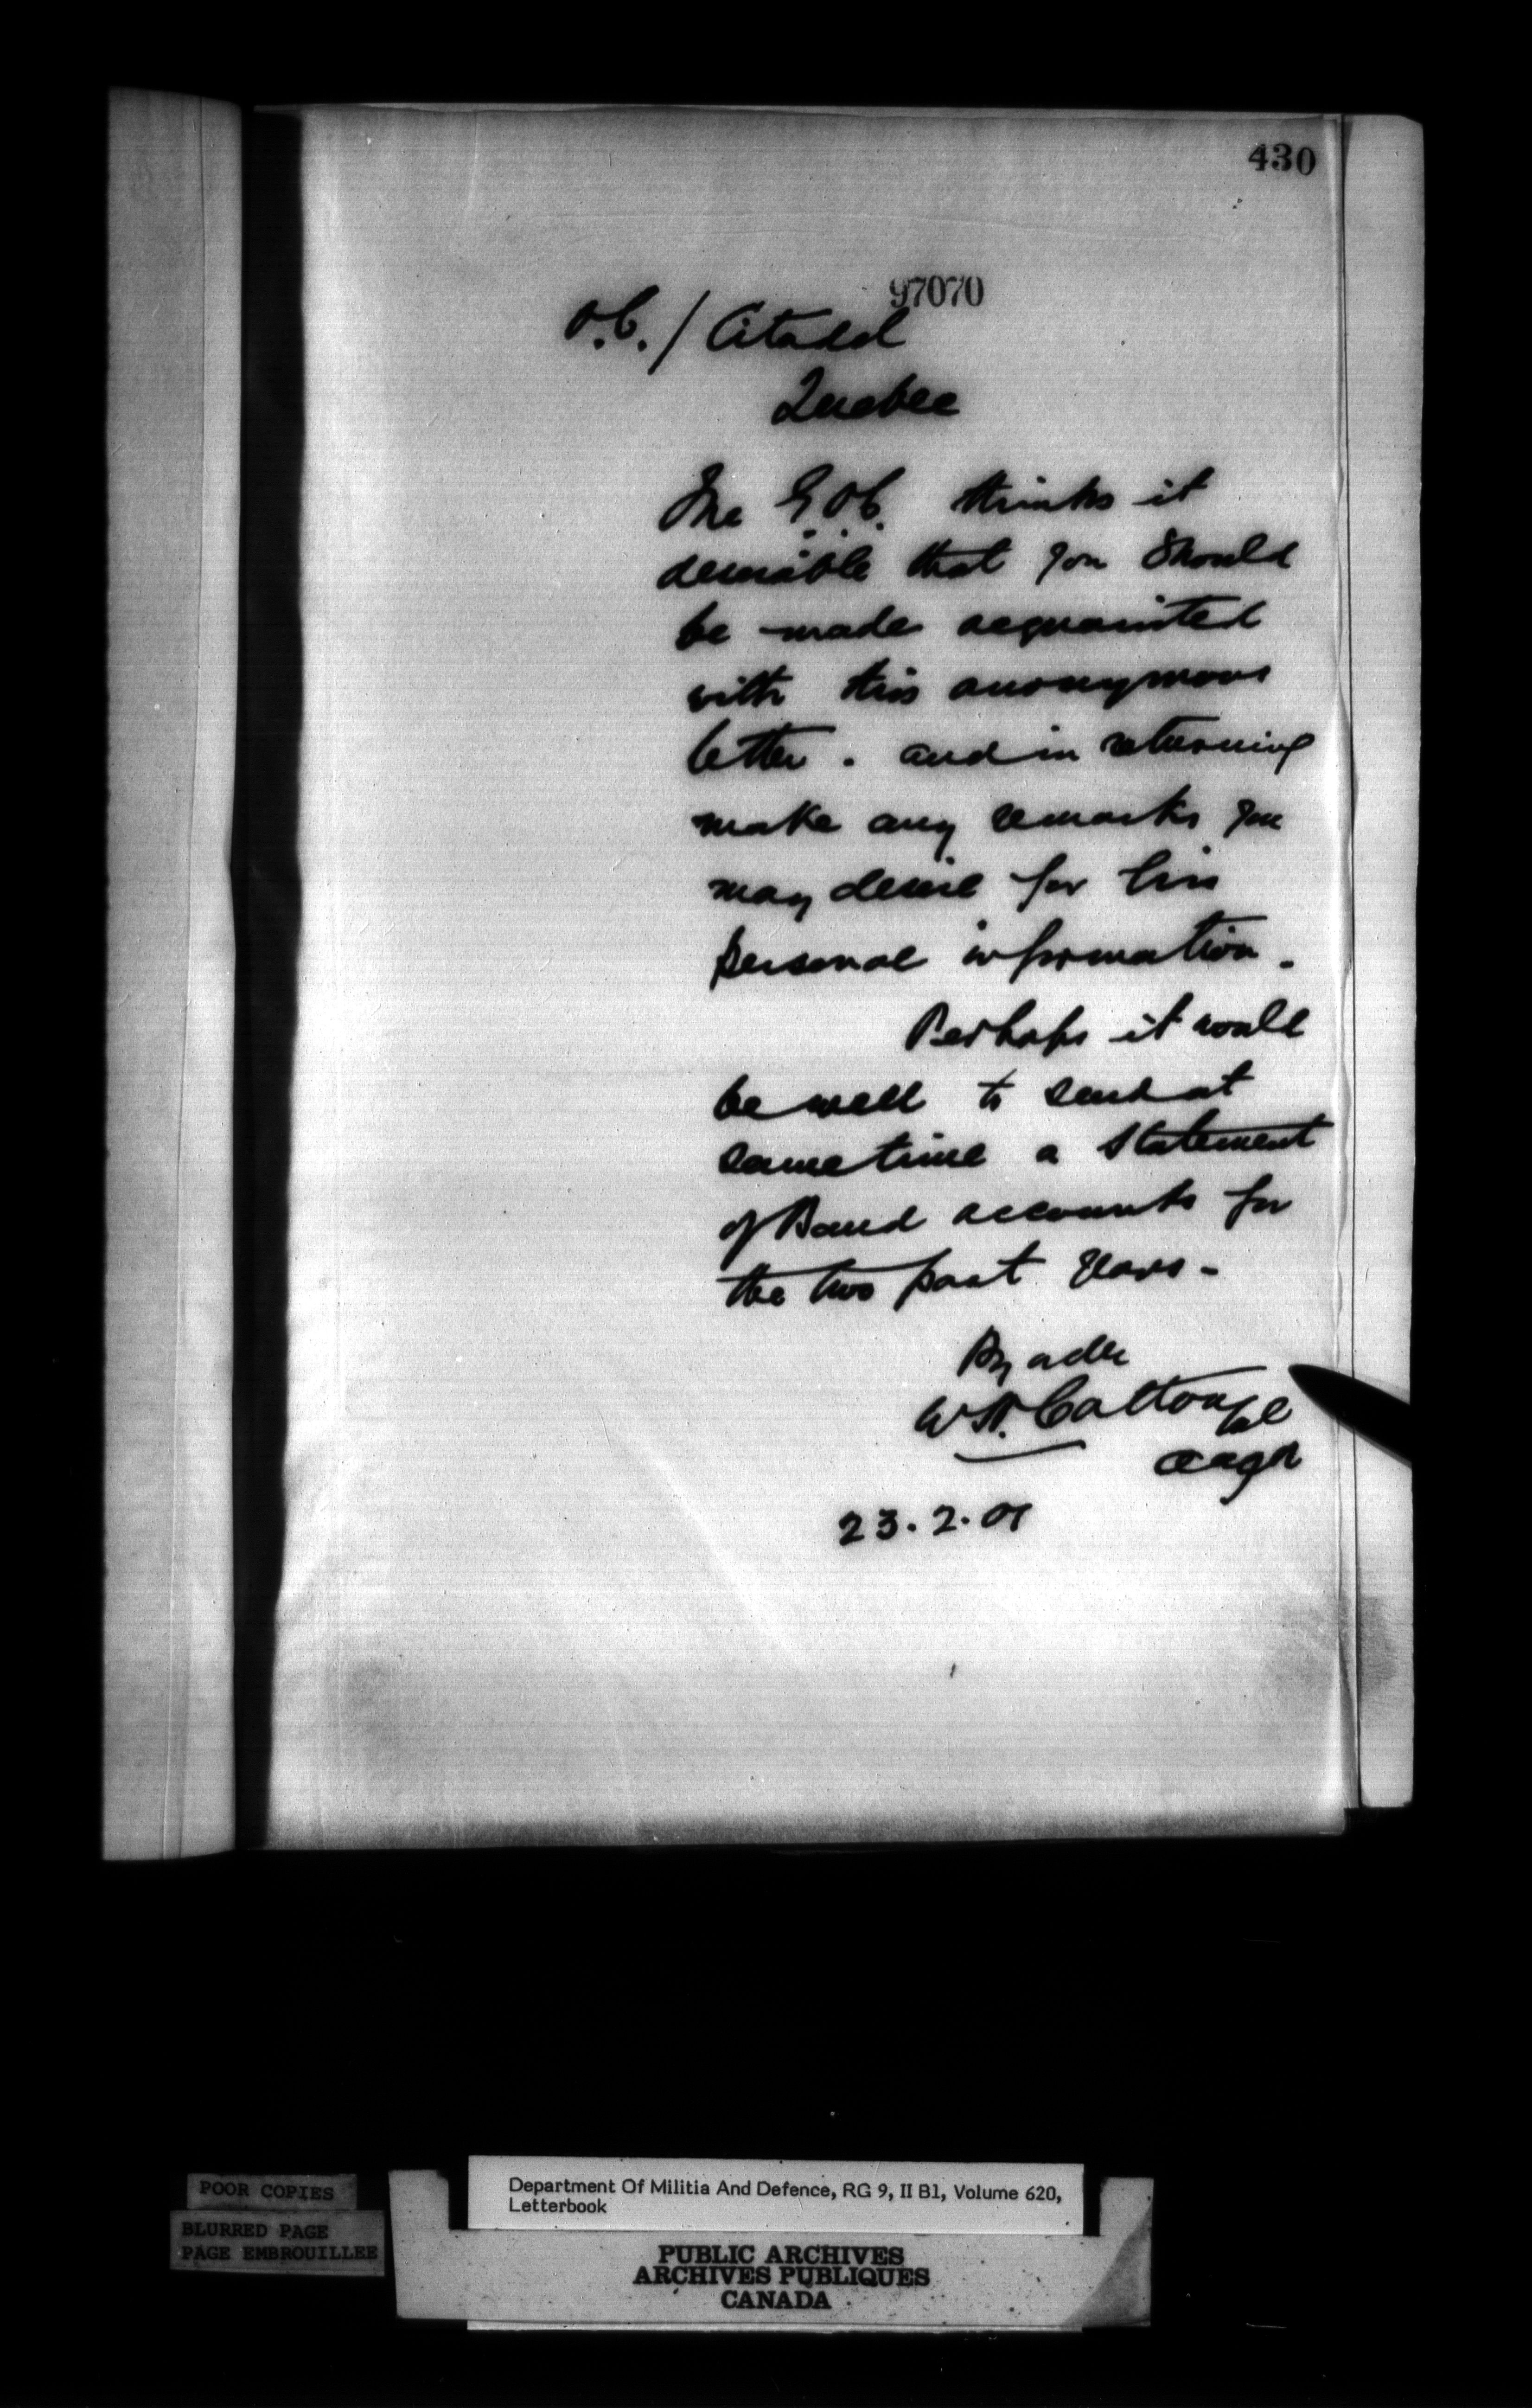 430
97070
O.C. / Citadel
Quebec
The G.O.C. thinks it
desirable that you should
be made acquainted
with this anonymous
letter. and in returning
make any remarks you
may desire for his
personal information.
Perhaps it would
be well to send at
same time a statement
of Band accounts for
the two past years-
By order
W.H. Cotton
23.2.01
POOR COPIES
BLURRED PAGE
PAGE EMBROUILLEE
Department Of Militia And Defence, RG 9, II B1, Volume 620,
Letterbook
PUBLIC ARCHIVES
ARCHIVES PUBLIQUES
CANADA